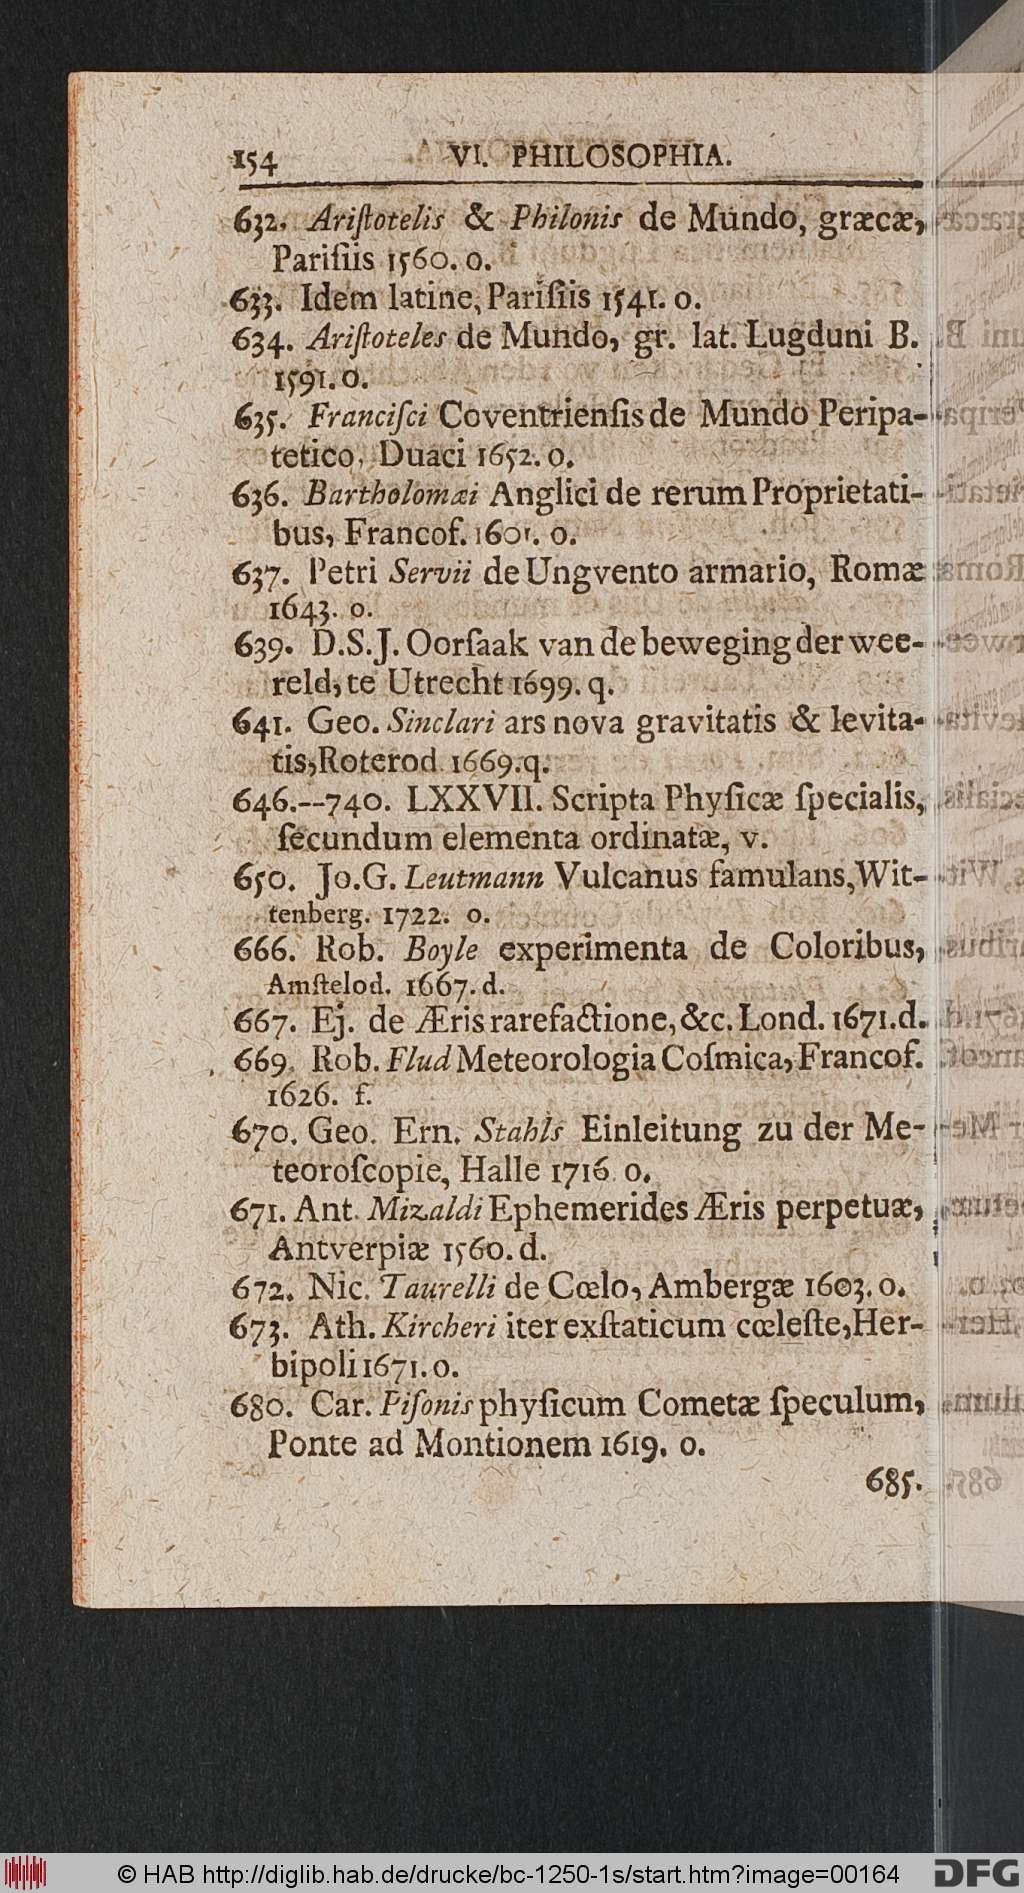 154 VI. PHILOSOPHIA.
632. Ariſtotelis & Philonis de Mundo, græcæ,
Pariſiis 1560. o.
633. Idem latine, Pariſiis 1541. o.
634. Ariſtoteles de Mundo, gr. lat. Lugduni B.
1591. o.
635. Franciſci Coventrienſis de Mundo Peripa-
tetico, Duaci 1652. o.
636. Bartholomæi Anglici de rerum Proprietati-
bus, Francof. 1601. o.
637. Petri Servii de Ungvento armario, Romæ
1643. o.
639. D.S.J. Oorſaak van de beweging der wee-
reld, te Utrecht 1699. q.
641. Geo. Sinclari ars nova gravitatis & levita-
tis, Roterod. 1669. q.
646.--740. LXXVII. Scripta Phyſicæ ſpecialis,
ſecundum elementa ordinatæ, v.
650. Jo.G. Leutmann Vulcanus famulans, Wit-
tenberg. 1722. o.
666. Rob. Boyle experimenta de Coloribus,
Amſtelod. 1667. d.
667. Ej. de Æris rarefactione, &c. Lond. 1671. d.
669. Rob. Flud Meteorologia Coſmica, Francof.
1626. f.
670. Geo. Ern. Stahls Einleitung zu der Me-
teoroſcopie, Halle 1716. o.
671. Ant. Mizaldi Ephemerides Æris perpetuæ,
Antverpiæ 1560. d.
672. Nic. Taurelli de Cœlo, Ambergæ 1603. o.
673. Ath. Kircheri iter exſtaticum cœleſte, Her-
bipoli 1671. o.
680. Car. Piſonis phyſicum Cometæ ſpeculum,
Ponte ad Montionem 1619. o.
685.
© HAB http://diglib.hab.de/drucke/bc-1250-1s/start.htm?image=00164
DFG